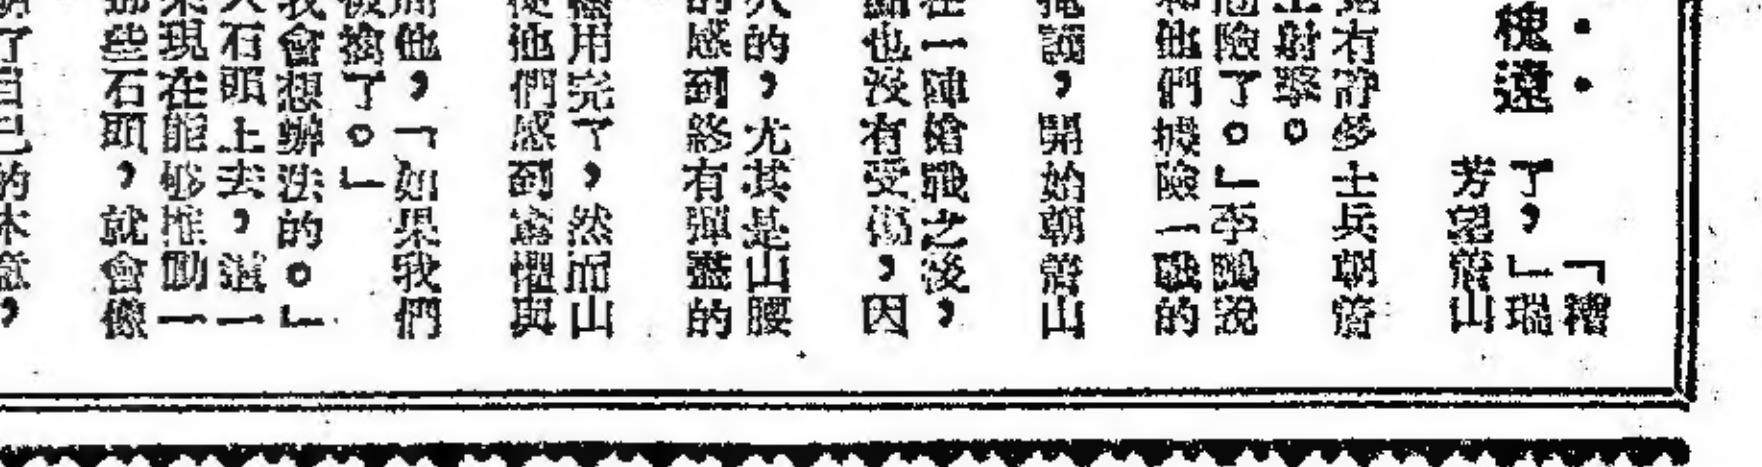 ：槐遠
「糟
了，」瑞
芳望着山
有許多士兵朝着
上射擊。
危險了。」李鵬說
和他們機險一戰的
掩護，開始朝着山
在一陣槍戰之後，
點也沒有受傷，因
人的，尤其是山腰
的感到終有彈盡的
用完了，然而山
使他們感到害怕與
他，「如果我們
被擒了。」
我會想辦法的。」
大石頭上去，這一
果現在能够推動一
那些石頭，就會像
了自己的木盒，